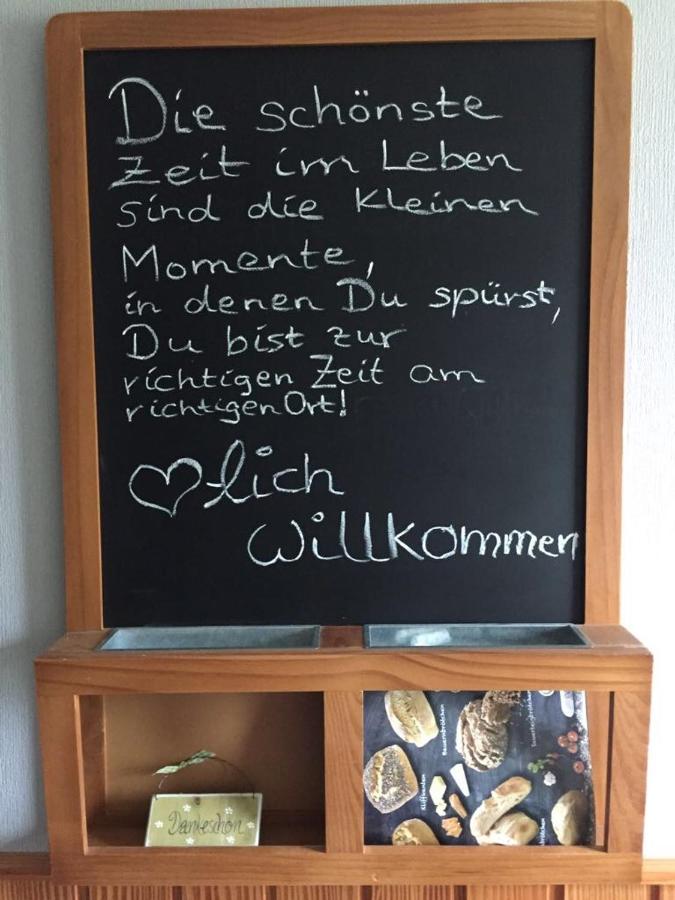 Die schönste
Zeit im Leben
sind die kleinen
Momente,
in denen Du spürst,
Du bist zur
richtigen Zeit am
richtigen Ort!
♡lich
willkommen
Dankeschön
Bauernbrötchen